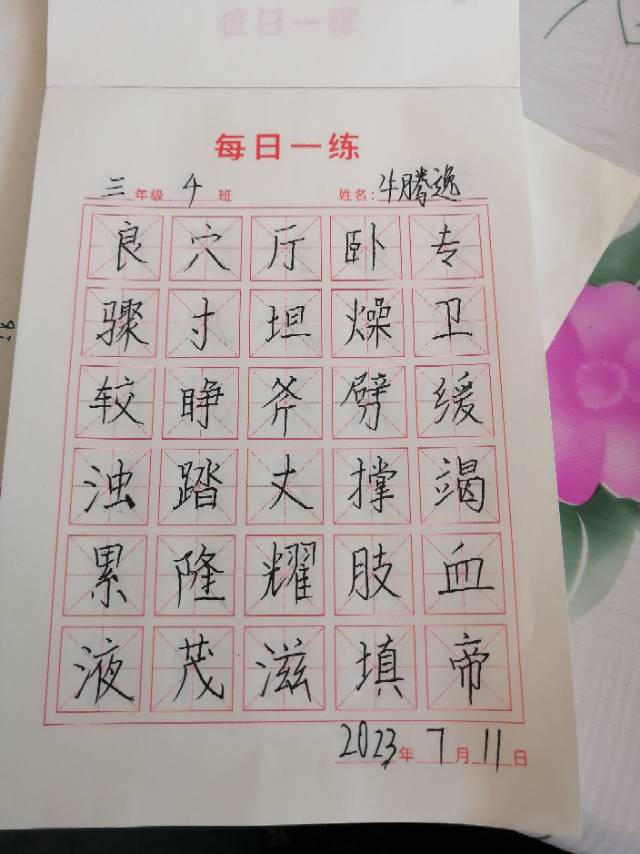 每日一练
三年级 4 班 姓名:牛腾逸
良穴厅卧专
骤寸坦燥卫
较睁斧劈缓
浊踏丈撑竭
累隆耀肢血
液茂滋填帝
2023年7月11日